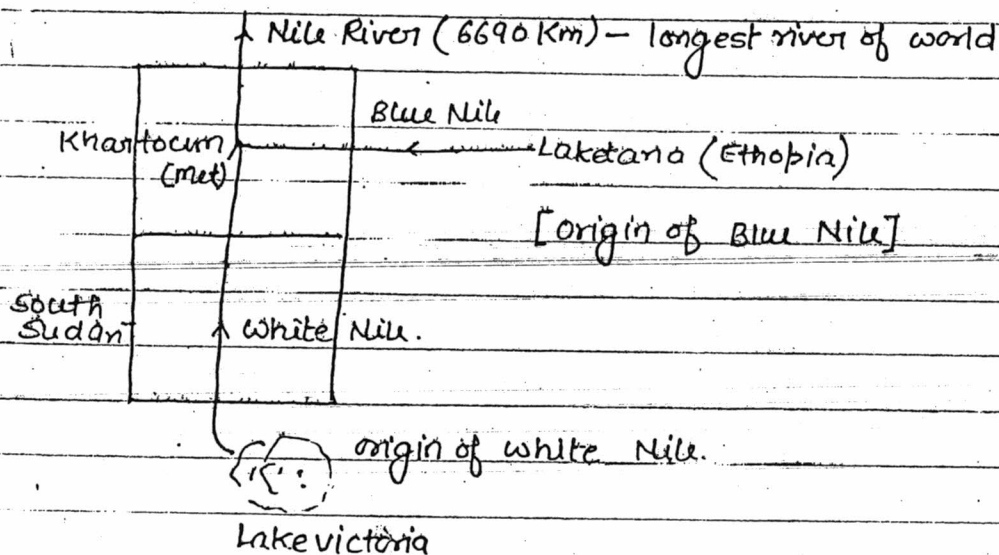 Nile River (6690 Km) – longest river of world
Blue Nile
Khartoum
(met)
Laketana (Ethopia)
[origin of Blue Nile]
South
Sudan
White Nile.
origin of white Nile.
Lake victoria